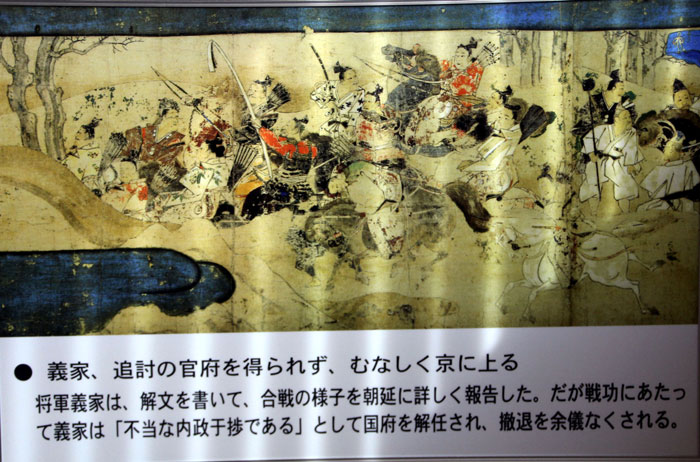 ● 義家、追討の官府を得られず、むなしく京に上る
将軍義家は、解文を書いて、合戦の様子を朝廷に詳しく報告した。だが戦功にあたっ
て義家は「不当な内政干捗である」として国府を解任され、撤退を余儀なくされる。